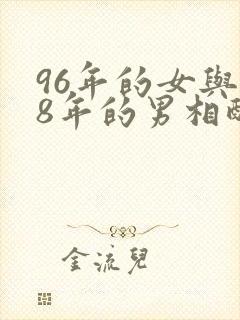 96年的女與
8年的男相
金流兒